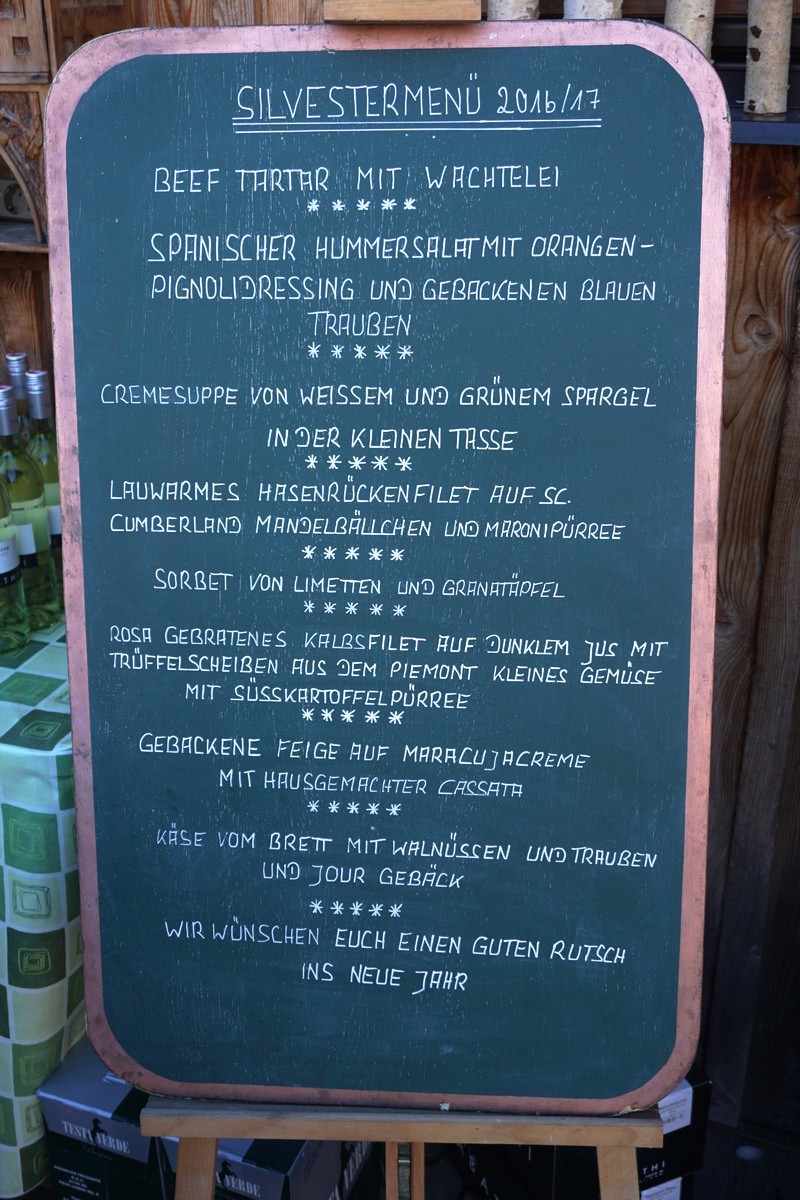 SILVESTERMENÜ 2016/17
BEEF TARTAR MIT WACHTELEI
*****
SPANISCHER HUMMERSALAT MIT ORANGEN-
PIGNOLIDRESSING UND GEBACKENEN BLAUEN
TRAUBEN
*****
CREMESUPPE VON WEISSEM UND GRÜNEM SPARGEL
IN DER KLEINEN TASSE
*****
LAUWARMES HASENRÜCKENFILET AUF SC.
CUMBERLAND MANDELBÄLLCHEN UND MARONIPÜRREE
*****
SORBET VON LIMETTEN UND GRANATÄPFEL
*****
ROSA GEBRATENES KALBSFILET AUF DUNKLEM JUS MIT
TRÜFFELSCHEIBEN AUS DEM PIEMONT KLEINES GEMÜSE
MIT SÜSSKARTOFFELPÜRREE
*****
GEBACKENE FEIGE AUF MARACUJACREME
MIT HAUSGEMACHTER CASSATA
*****
KÄSE VOM BRETT MIT WALNÜSSEN UND TRAUBEN
UND JOUR GEBÄCK
*****
WIR WÜNSCHEN EUCH EINEN GUTEN RUTSCH
INS NEUE JAHR
TESTA VERDE